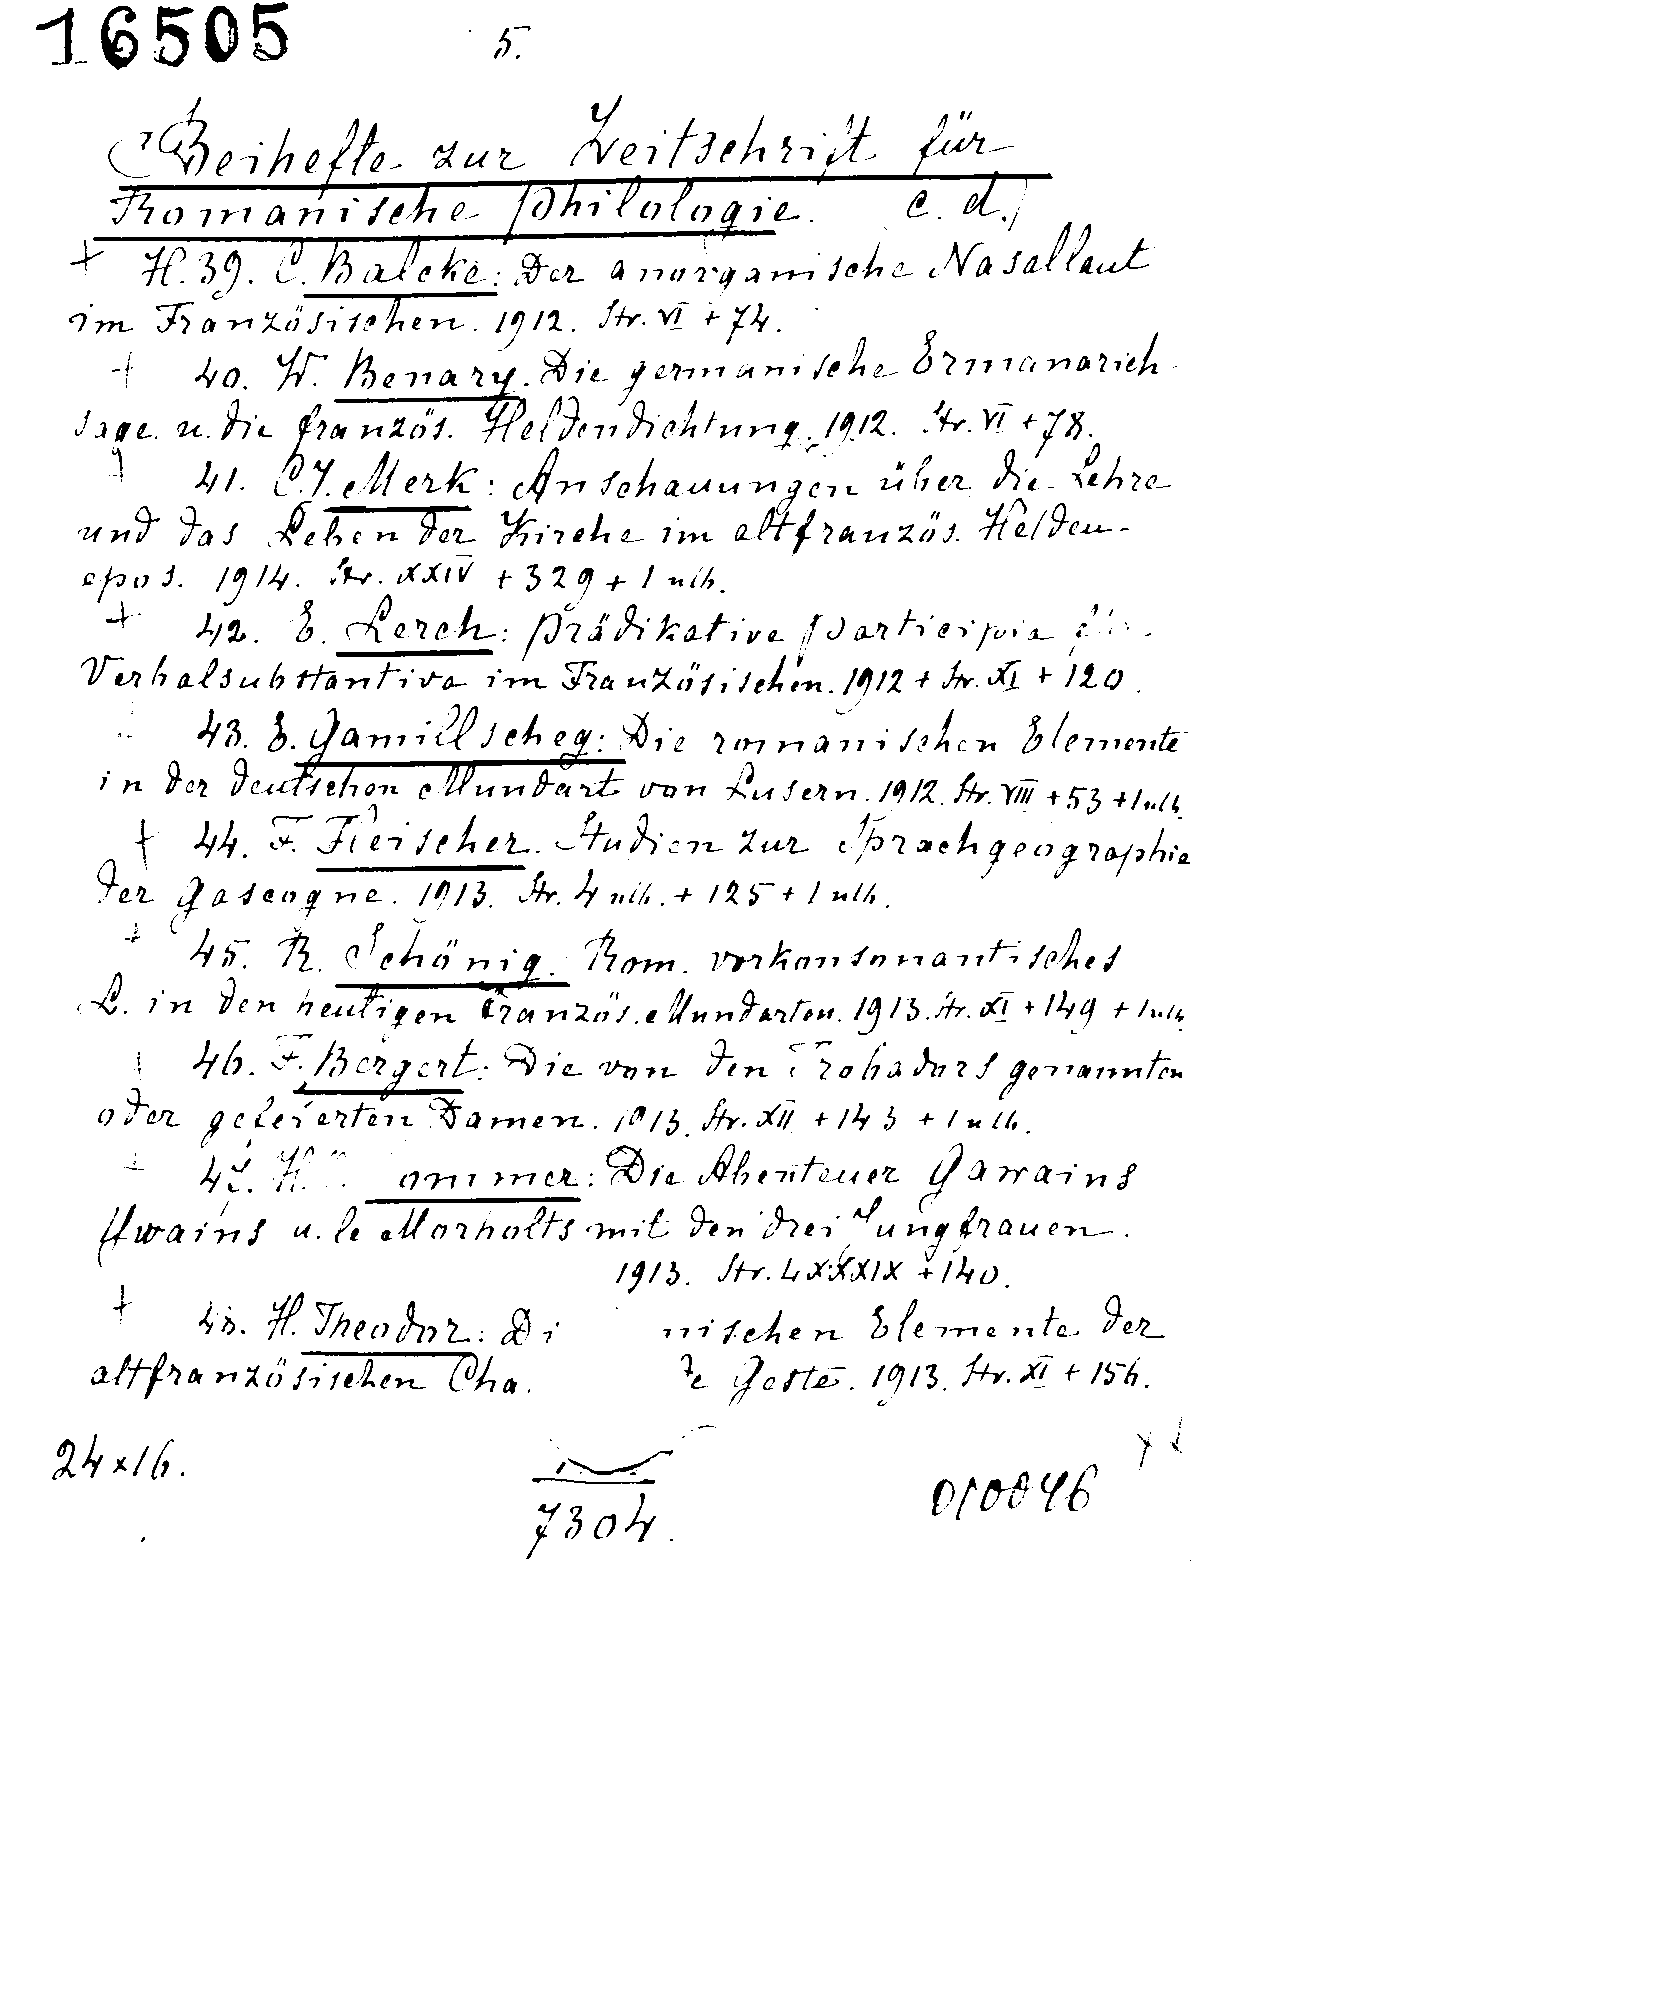 16505
5.
Beihefte zur Zeitschrift für
Romanische Philologie. c. d.)
+ H. 39. C. Balcke: Der anorganische Nasallaut
im Französischen. 1912. Str. VI + 74.
+ 40. W. Benary. Die germanische Ermanarich
sage u. die französ. Heldendichtung. 1912. Str. VI + 78.
+ 41. C. J. Merk: Anschauungen über die Lehre
und das Leben der Kirche im altfranzös. Helden-
epos. 1914. Str. XXIV + 329 + 1 nlb.
+ 42. E. Lerch: Prädikative Participia für
Verbalsubstantiva im Französischen. 1912 + Str. XI + 120.
43. E. Gamillscheg: Die romanischen Elemente
in der deutschen Mundart von Lusern. 1912. Str. VIII + 53 + 1 nlb.
+ 44. F. Fleischer. Studien zur Sprachgeographie
der Gascogne. 1913. Str. 4 nlb. + 125 + 1 nlb.
+ 45. R. Schönig. Rom. vorkonsonantisches
L. in den heutigen französ. Mundarten. 1913. Str. XI + 149 + 1 nlb.
46. F. Bergert: Die von den Trobadors genannten
oder gefeierten Damen. 1913. Str. XII + 143 + 1 nlb.
+ 47. H. ommer: Die Abenteuer Gawains
Ywains u. le Morholts mit den drei Jungfrauen.
1913. Str. LXXXIX + 140.
+ 48. H. Theodor: Di nischen Elemente der
altfranzösischen Cha. de Geste. 1913. Str. XI + 156.
24 x 16.
7304.
010046